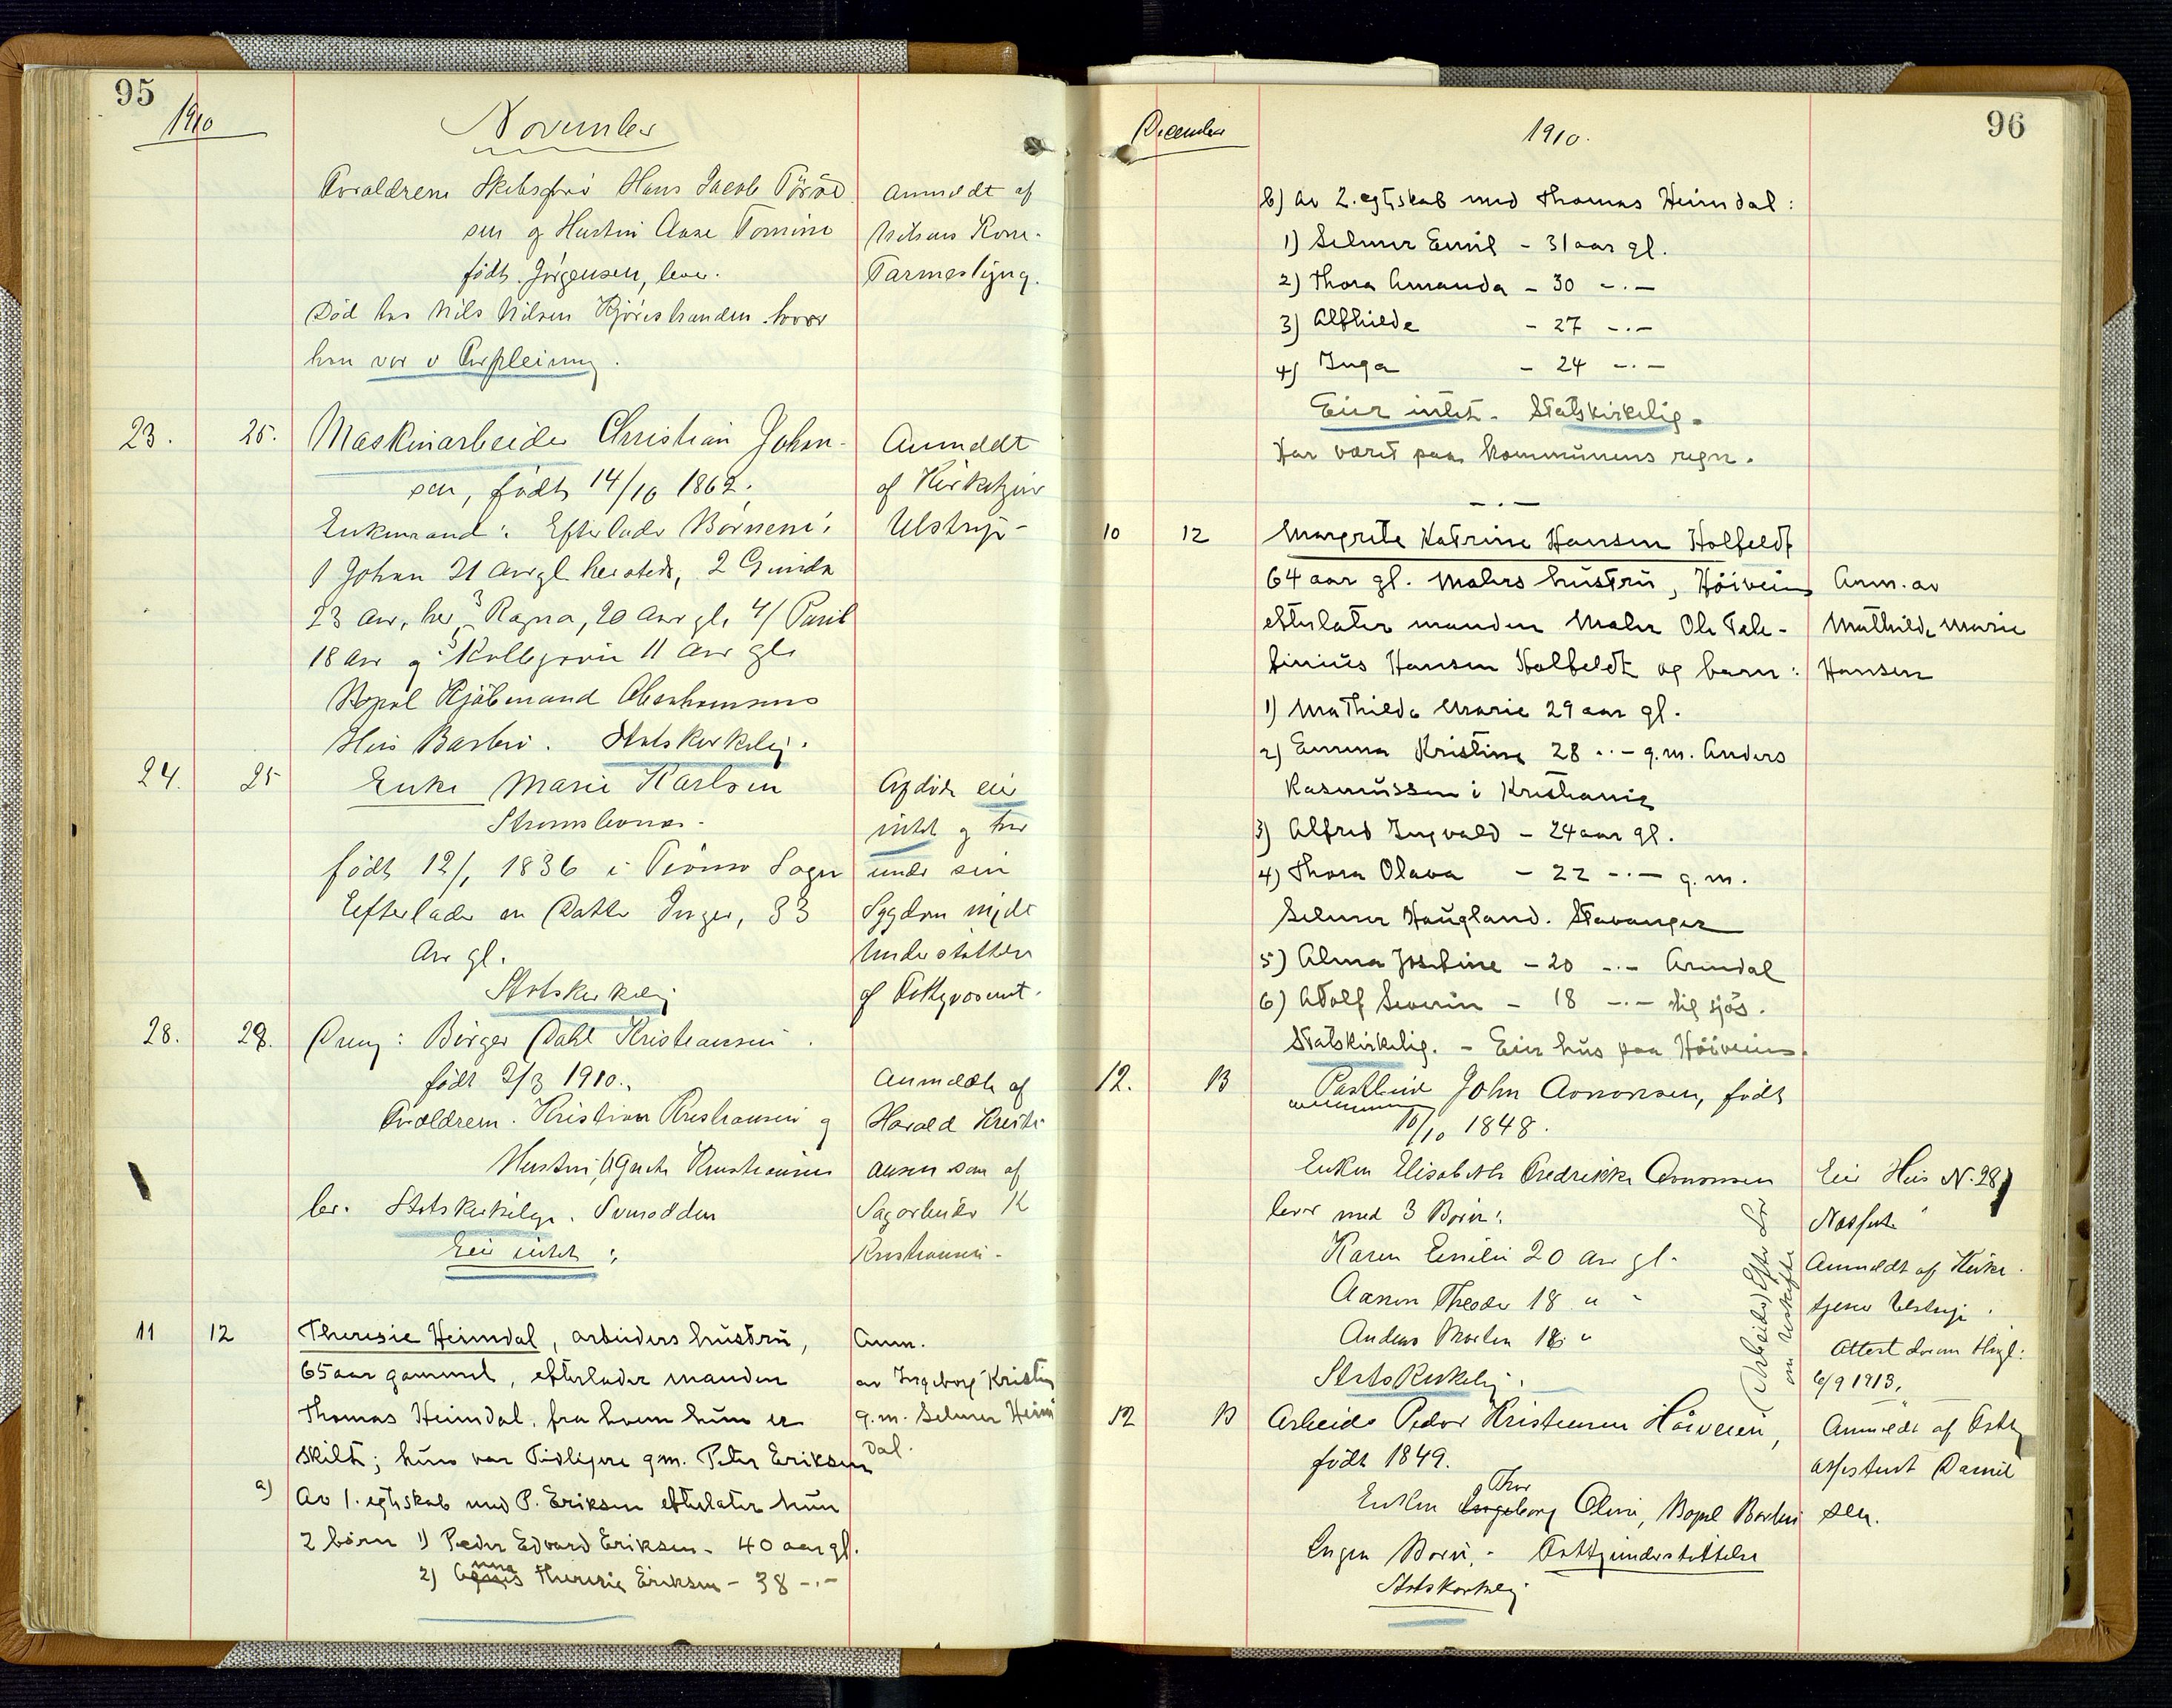 95
1910
November
Forældrene Skibsfører Hans Jacob
sen og Hustru Aase Tomine
født Jørgensen, lever.
Anmeldt af
Nilsens Kone
Død hos Nils Nilsen Kjøristranden hvor
han var i Forpleining.
23. 25. Maskinarbeider Christian John-
sen, født 14/10 1862.
Enkemand: Efterlader Børnene:
1 Johan 21 Aar gl hersteds, 2 Gunda
23 Aar, her, 3 Ragna, 20 Aar gl, 4/ Paul
18 Aar og 5 11 Aar gl.
Bopæl Kjøbmand Abrahamsens
Hus Barbu. Statskirkelig.
Anmeldt
af Kirketjener
Ulstrup-
24. 25 Enke Marie Karlsen
Strømsbones.
født 12/1 1836 i Tromø Sogn
Efterlader en Datter Inger, 33
Aar gl.
Statskirkelig
Afdøde eier
intet og har
under sin
Sygdom nydt
Understøttelse
af Fattigvæsenet.
28. 29. Dreng: Birger Dahl Kristiansen.
født 2/3 1910.
Forældrene. Kristian Kristiansen og
Hustru, Kristiansen
lev. Statskirkelige. Tversodden
Eier intet.
Anmeldt af
Harald Kristi-
ansen søn af
Sagarbeider K
Kristiansen-
11 12 Theresie Heimdal, arbeiders hustru,
65 aar gammel, efterlader manden
Thomas Heimdal, fra hvem hun er
skilt; hun var Tidligere g.m. Peter Eriksen
a) Av 1. egteskab med P. Eriksen efterlater hun
2 børn 1) Peder Edvard Eriksen - 40 aar gl.
2) Anna Theresie Eriksen - 38 -.-
Anm.
av Ingeborg Kristin
g.m. Selmer Heim
dal.
December
1910.
96
b) Av 2. egteskab med Thomas Heimdal:
1) Selmer Emil - 31 aar gl.
2) Thora Amanda - 30 -.-
3) Alfhilde - 27 -.-
4) Inga - 24 -.-
Eier intet. Statskirkelig.
Har været paa kommunens regn.
-.-
10 12 Margrete Katrine Hansen Holfeldt
64 aar gl. Malers hustru, Höiveien
efterlater manden Maler Ole Tale-
finius Hansen Holfeldt og barn:
1) Mathilde Marie 29 aar gl.
2) Emma Kristine 28 -.- g.m. Anders
Rasmussen i Kristiania
3) Alfred Ingvald - 24 aar gl.
4) Thora Olava - 22 -.- g.m.
Selmer Haugland. Stavanger
5) Alma Josefine - 20 -.- Arendal
6) Adolf Severin - 18 -.- til sjøs.
Statskirkelig. - Eier hus paa Höiveien.
Anm. av
Mathilde Marie
Hansen
12. 13 John Aanonsen, født
10/10 1848.
Enken Elisabeth Fredrikke Aanonsen
lever med 3 Børn:
Karen Emilie 20 Aar gl.
Aanon Theodor 18 " -
Anders Morten 18 "
Statskirkelig.
Eier Hus N. 287
Anmeldt af Kirke-
tjener Ulstrup.
6/9 1913.
12 13 Arbeider Peder Kristensen Höiveien,
født 1849.
Enken Thor
Ingeborg Oline, Bopæl Barbu
Ingen Børn. - Fattigunderstøttelse
Statskirkelig
Anmeldt af Fattig
assistent Daniel
sen.